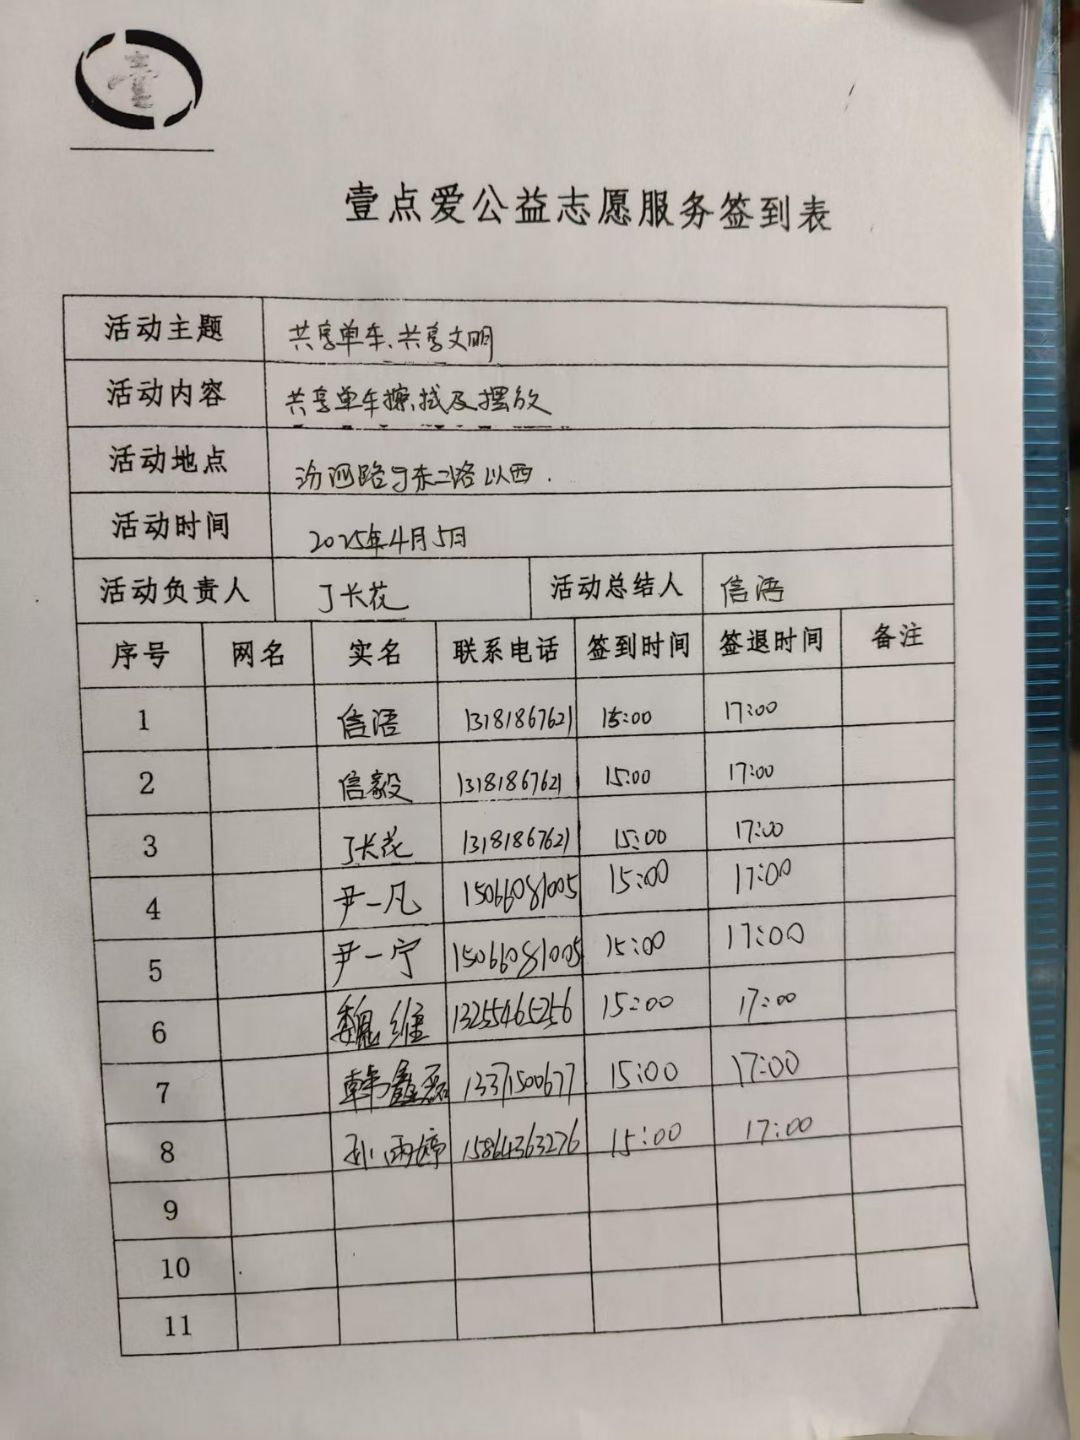 壹
壹点爱公益志愿服务签到表
活动主题 共享单车、共享文明
活动内容 共享单车擦拭及摆放
活动地点 汾河路与东二路以西.
活动时间 2025年4月5日
活动负责人 丁长花 活动总结人 信语
序号 网名 实名 联系电话 签到时间 签退时间 备注
1 信语 13181867621 15:00 17:00
2 信毅 13181867621 15:00 17:00
3 丁长花 13181867621 15:00 17:00
4 尹一凡 15066081005 15:00 17:00
5 尹一宁 15066081005 15:00 17:00
6 魏维 13255465256 15:00 17:00
7 韩鑫磊 13371500677 15:00 17:00
8 孙雨婷 15864363276 15:00 17:00
9
10
11